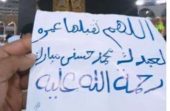 اللهم تقبلها عمره
لعبدك محمد حسني مبارك
رحمة الله عليه